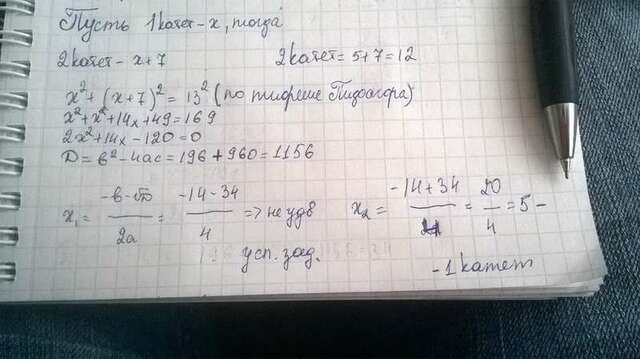 Пусть 1катет - x, тогда
2катет - x+7
2катет = 5+7=12
x²+(x+7)²=13² (по теореме Пифагора)
x²+x²+14x+49=169
2x²+14x-120=0
D=в²-4ac=196+960=1156
x₁= -в-√D/2a = -14-34/4 => не удв
усл. зад.
x₂= -14+34/4 = 20/4 =5 -
- 1катет